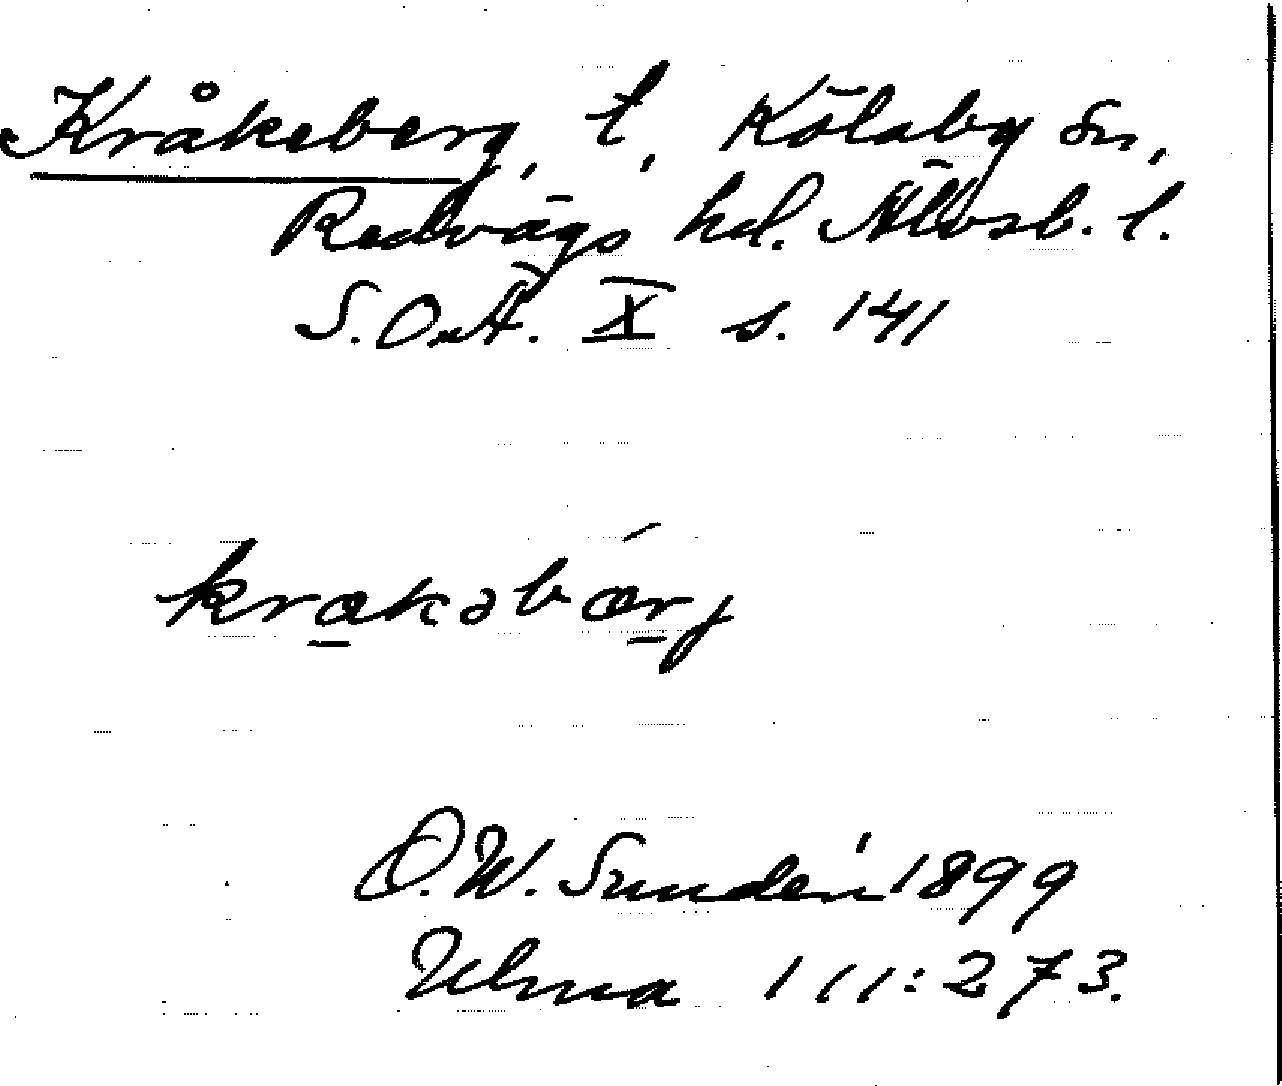 Kråkeberg, t, Kölaby sn,
Redvägs hd. Älvsb. l.
S.OnÄ. X s. 141
krakəbærj
D. W. Sundén 1899
Ulma 111:273.